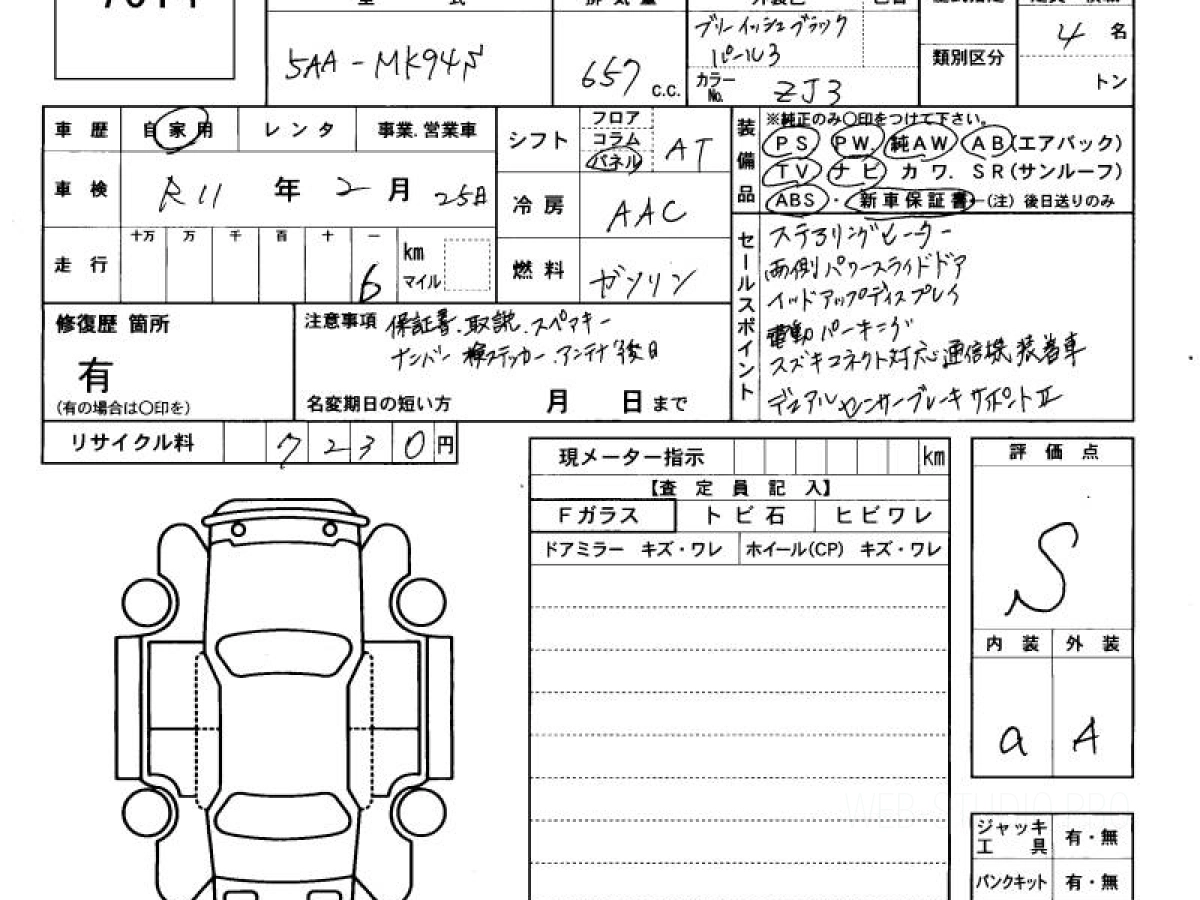 5AA-MK94S
657 c.c.
ブリーイッシュブラック
パール3
カラーNo. ZJ3
類別区分
4 名
トン
車歴 自家用 レンタ 事業.営業車
シフト フロア コラム パネル AT
装備品
※純正のみ〇印をつけて下さい。
PS PW 純AW AB(エアバック)
TV ナビ カワ. SR(サンルーフ)
ABS・新車保証書←(注)後日送りのみ
車検 R11年2月25日
冷房 AAC
走行 十万 万 千 百 十 一
6 km マイル
燃料 ガソリン
セールスポイント
ステアリングヒーター
両側パワースライドドア
ヘッドアップディスプレイ
電動パーキング
スズキコネクト対応通信機装着車
デュアルセンサーブレーキサポートⅡ
修復歴 箇所
有
(有の場合は〇印を)
注意事項 保証書.取説.スペアキー
ナンバー 検ステッカー.アンテナ後日
名変期日の短い方 月 日まで
リサイクル料 7230円
現メーター指示 km
【査定員記入】
Fガラス トビ石 ヒビワレ
ドアミラー キズ・ワレ ホイール(CP) キズ・ワレ
評価点
S
内装 外装
a A
ジャッキ工具 有・無
パンクキット 有・無
WEB-STUDIO.PRO